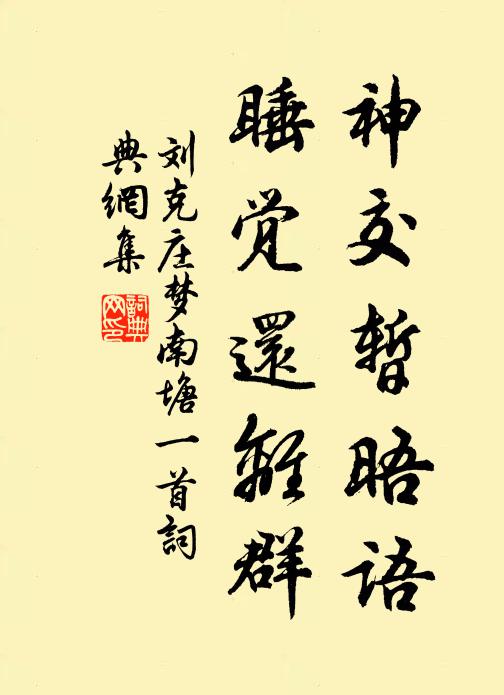 神交暂晤语
睡觉還離群
刘克庄梦南塘一首詞
典網集
詞典
网印